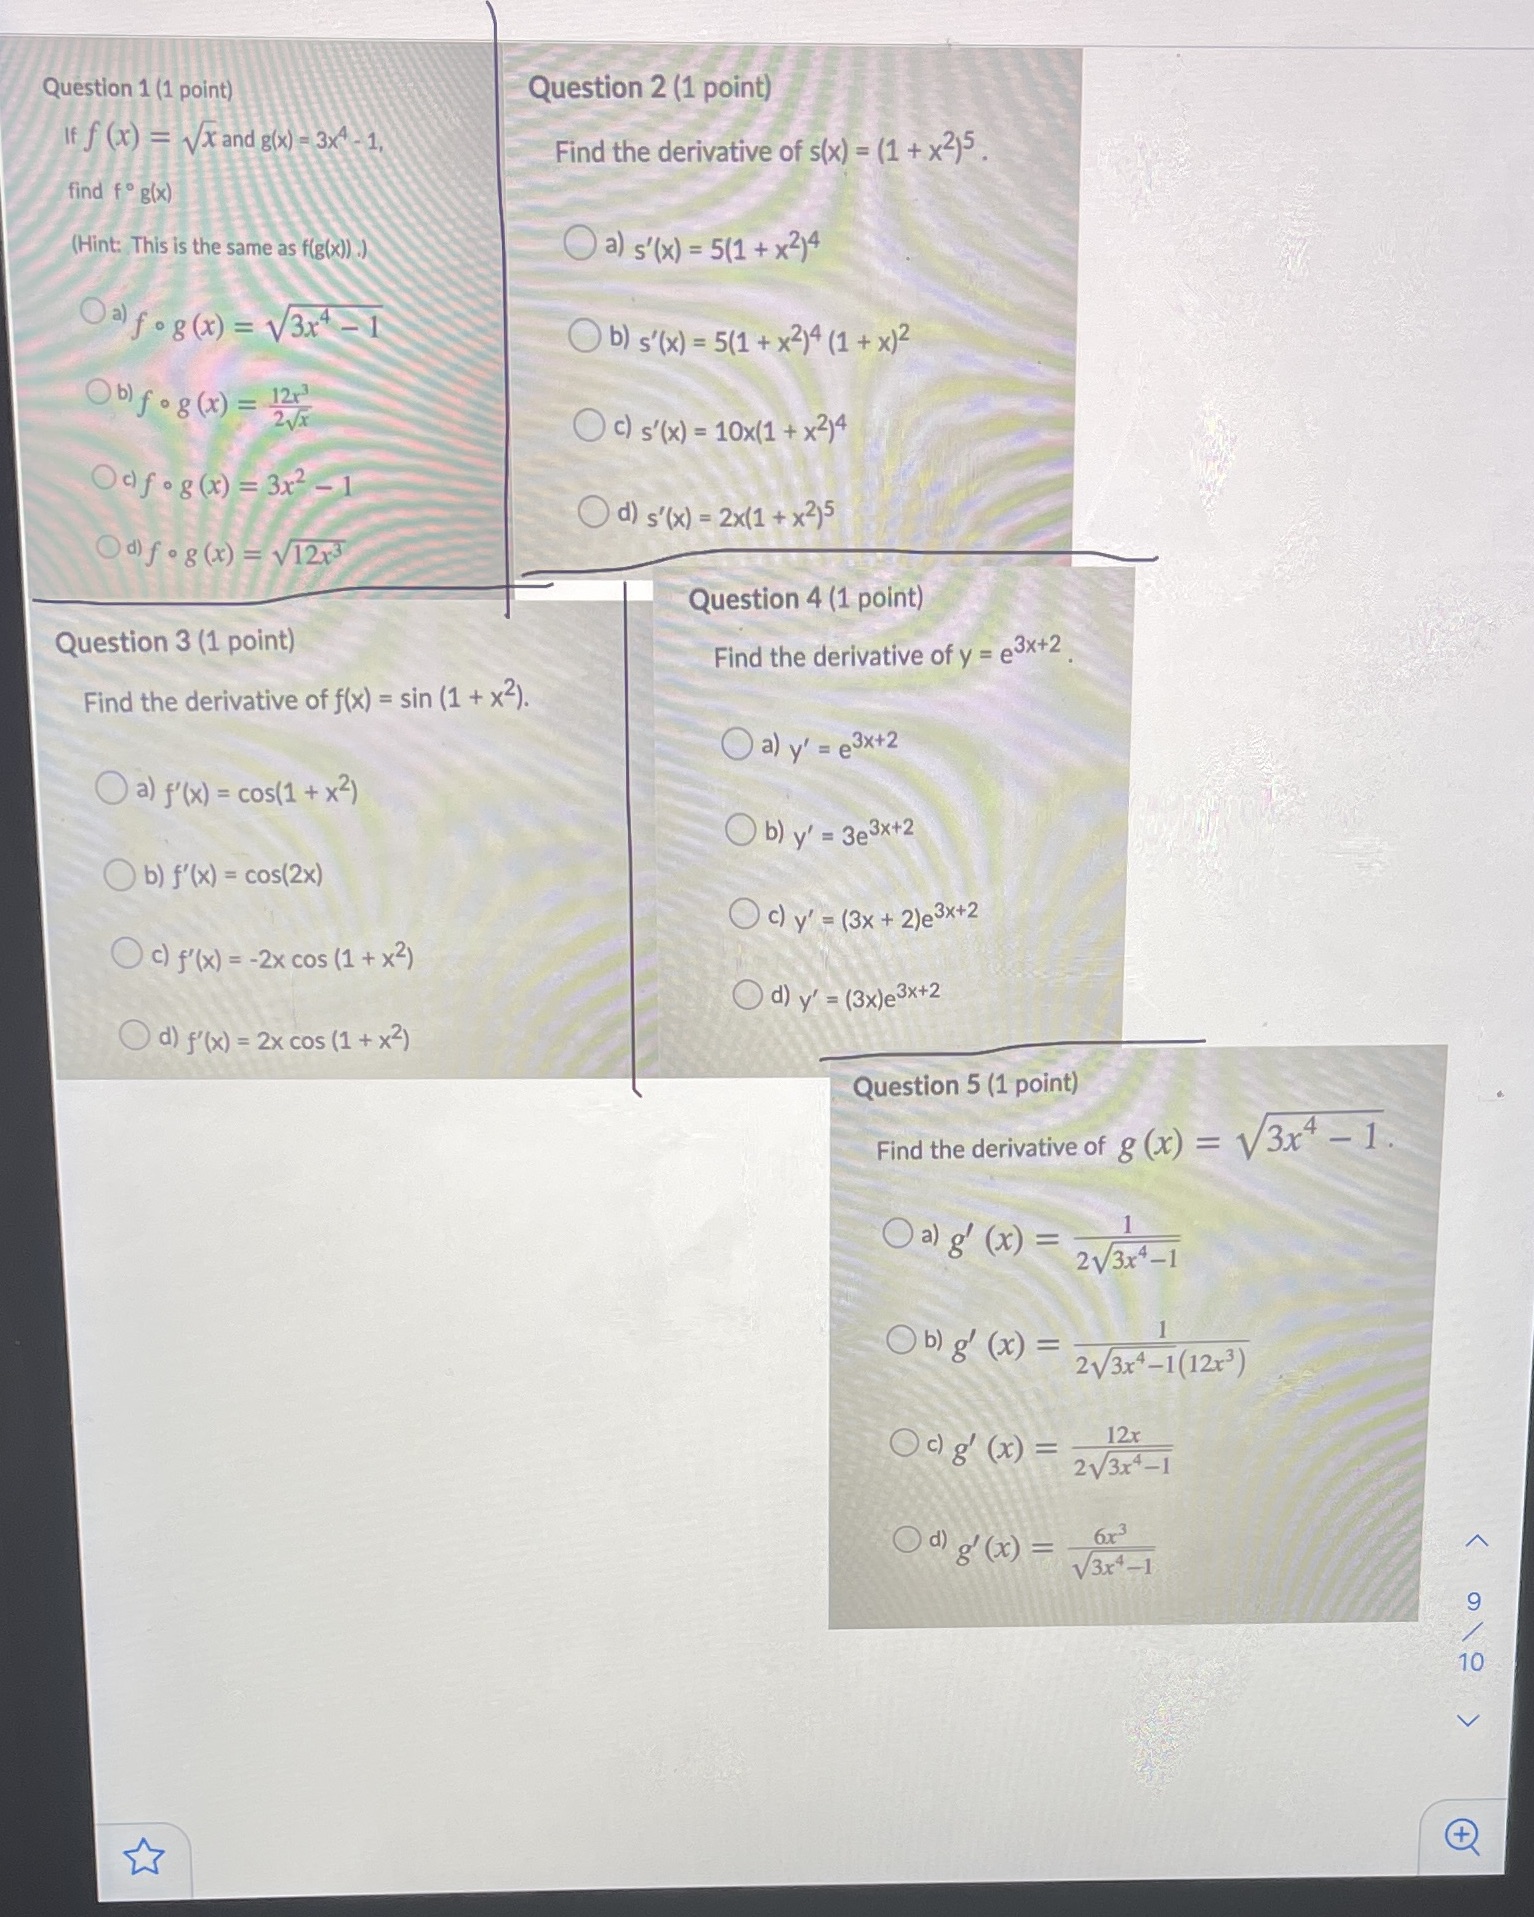 Question 1 (1 point)
If f (x) = √x and g(x) = 3x⁴ - 1,
find f ° g(x)
(Hint: This is the same as f(g(x)) .)
a) f ∘ g (x) = √(3x⁴ − 1)
b) f ∘ g (x) = 12x³/(2√x)
c) f ∘ g (x) = 3x² − 1
d) f ∘ g (x) = √(12x³)
Question 2 (1 point)
Find the derivative of s(x) = (1 + x²)⁵ .
a) s′(x) = 5(1 + x²)⁴
b) s′(x) = 5(1 + x²)⁴ (1 + x)²
c) s′(x) = 10x(1 + x²)⁴
d) s′(x) = 2x(1 + x²)⁵
Question 3 (1 point)
Find the derivative of f(x) = sin (1 + x²).
a) f′(x) = cos(1 + x²)
b) f′(x) = cos(2x)
c) f′(x) = -2x cos (1 + x²)
d) f′(x) = 2x cos (1 + x²)
Question 4 (1 point)
Find the derivative of y = e³ˣ⁺² .
a) y′ = e³ˣ⁺²
b) y′ = 3e³ˣ⁺²
c) y′ = (3x + 2)e³ˣ⁺²
d) y′ = (3x)e³ˣ⁺²
Question 5 (1 point)
Find the derivative of g (x) = √(3x⁴ − 1) .
a) g′ (x) = 1/(2√(3x⁴−1))
b) g′ (x) = 1/(2√(3x⁴−1)(12x³))
c) g′ (x) = 12x/(2√(3x⁴−1))
d) g′ (x) = 6x³/√(3x⁴−1)
9
/
10